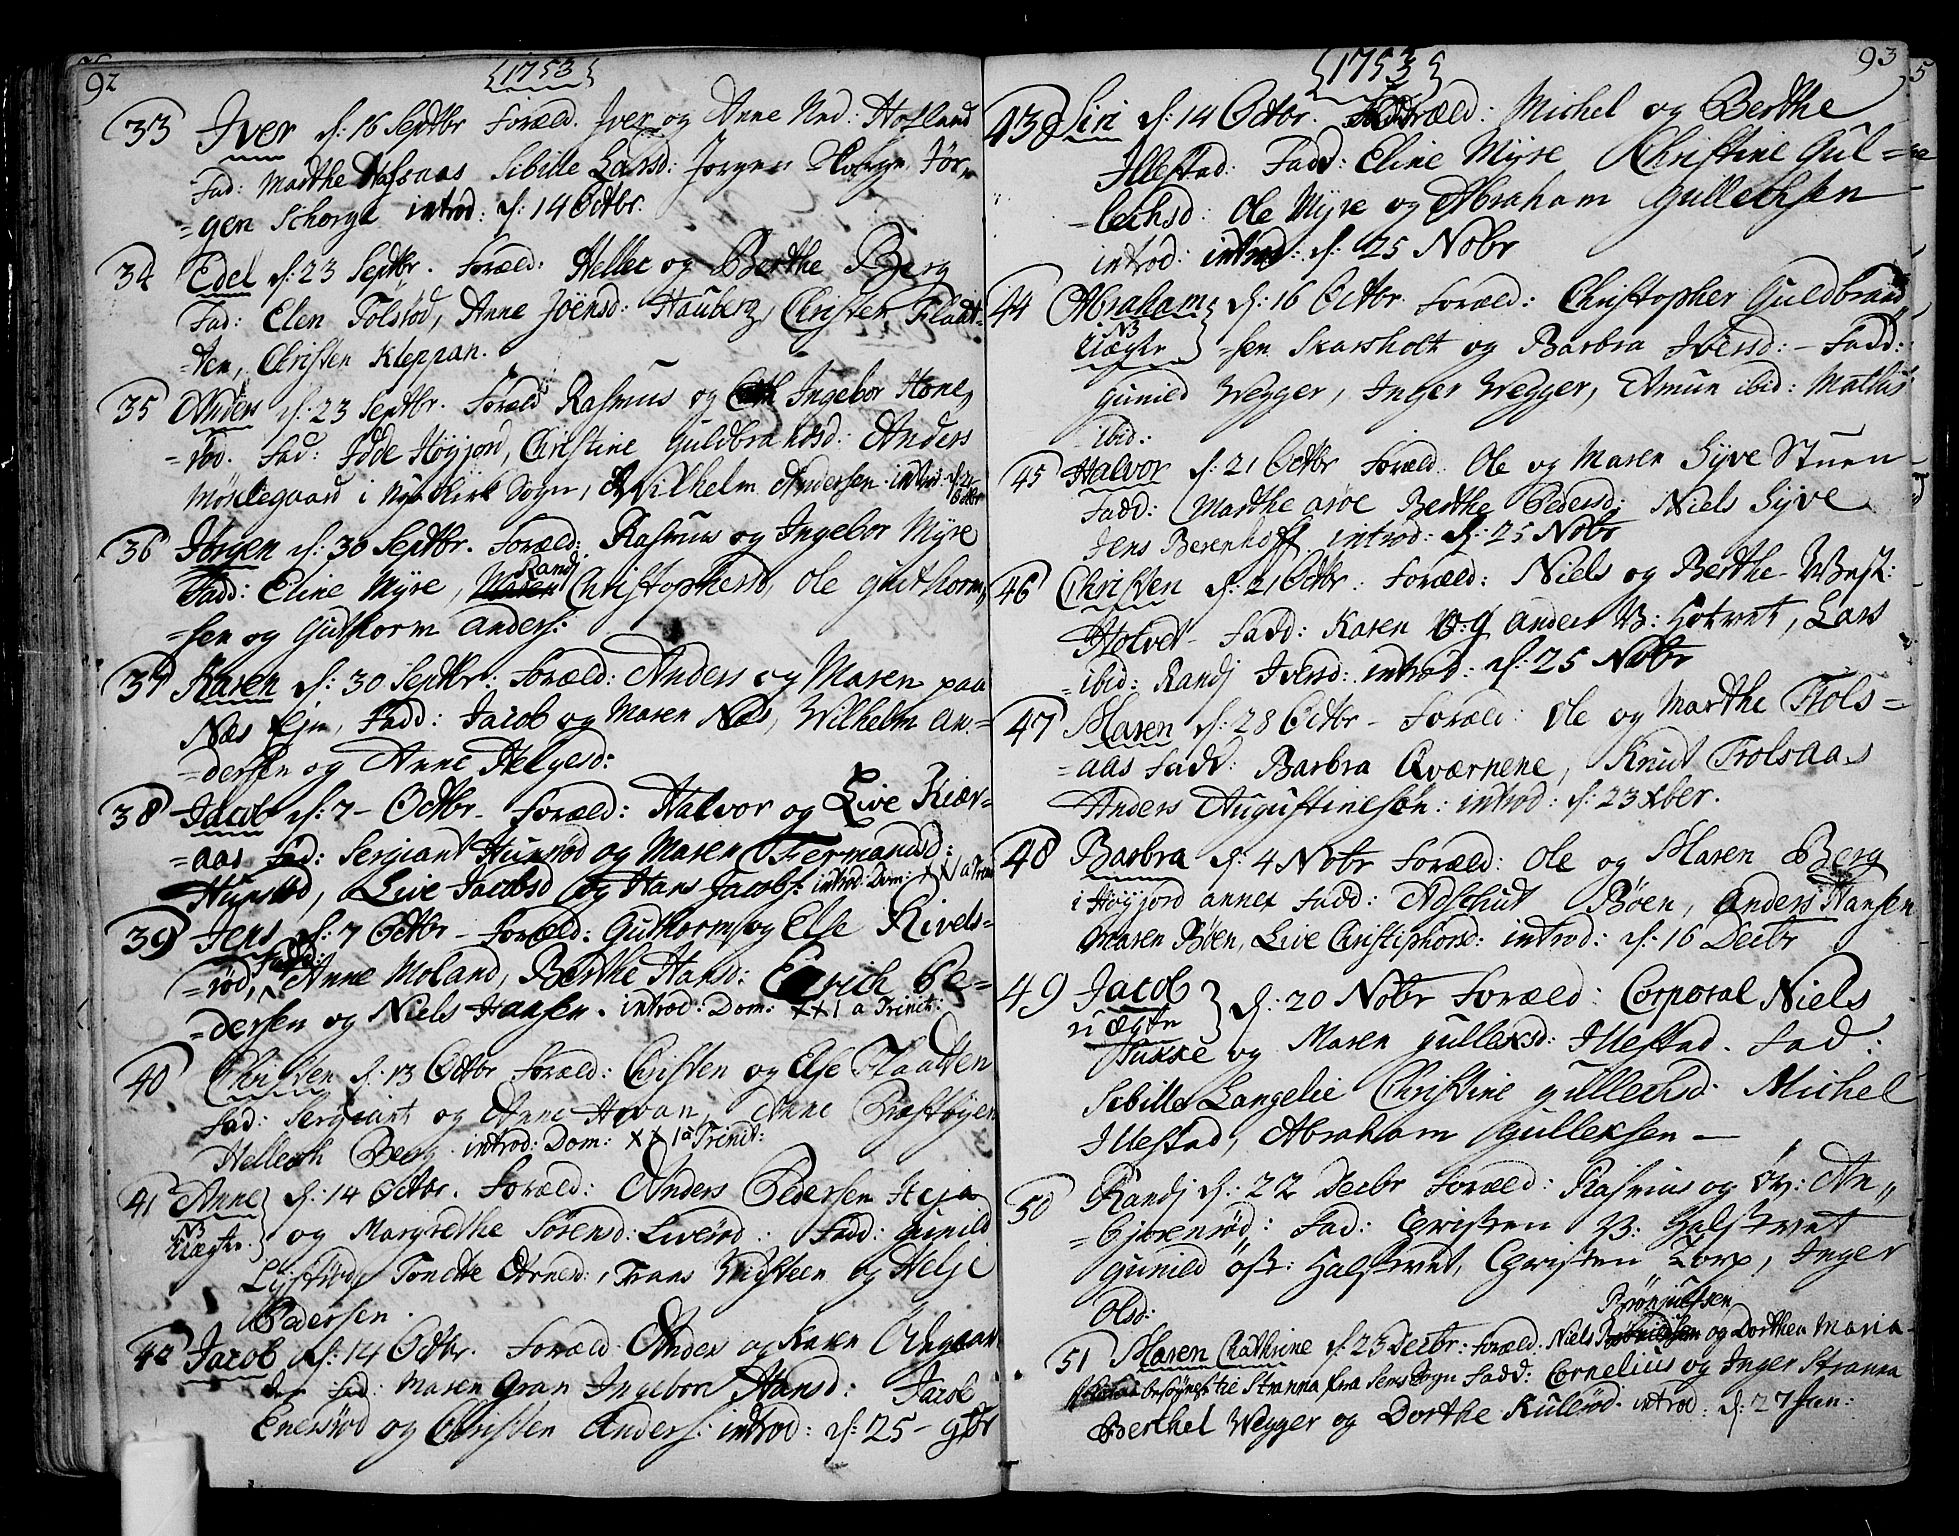 92
1753
33 Iver d: 16 Septbr Foræld. Iver og Anne Ned: Hofland
Fad: Marthe Sibille Larsd: Jørgen Jør,
=gen Schorge introd: d: 14 Octbr.
34 Edel d: 23 Septbr. Foræld: Hellec og Berthe Berg
Fad: Elen Tolsrød, Anne Joensd: Hauberg, Christen Flaat-
=ten, Christen Kleppan.
35 Anders d: 23 Septbr. Foræld Rasmus og Ingebor Hone,
=rød. Fad: Idde Høyjord, Christine Guldbrandsd: Anders
Møxlegaard i Nykirk Sogn, Wilhelm Andersen. introd: d: 21 Octbr
36 Jørgen d: 30 Septbr. Foræld: Rasmus og Ingebor Myre
Fadd: Eline Myre, Randj Christophersd, Ole Guthorm,,
=sen og Guthorm Anders:
37 Karen d: 30 Septbr: Foræld: Anders og Maren paa
Næs Eje, Fadd: Jacob og Maren Næs, Wilhelm An-
=dersen og Anne Helgesd:
38 Jacob d: 7 - Octbr - Foræld: Halvor og Live Kiær-
=aas Fad: Sergiant Hunsrød og Maren Fermandd:
Hunsrød, Live Jacobsd og Hans Jacobs: introd: Dom: XXI a Trinit
39 Jens d: 7 Octbr - Foræld: Guthorm og Else Kivels-
=rød, Fadd: Anne Moland, Berthe Hansd: Erich Pe-
=dersen og Niels Hansen. introd: Dom: XXI a Trinit:
40 Christen d: 13 Octbr Foræld: Christen og Else Flaatten
Fad: Sergiant og Anne Hovan, Anne Præstbyen
Hellech Berg. introd: Dom: XXI a Trinit:
41 Anne d: 14 Octbr. Foræld: Anders Pedersen Heja
NB Uægte. og Margrethe Sørensd: Liverød: Fadd: Gunild
Tonette Arnesd:, Frans Vidsteen og Helje
Pedersen.
42 Jacob d: 14 Octbr. Foræld: Anders og Karen Ødegaar
den Fad: Maren Gran Ingebor Hansd: Jacob
Enersrød og Christen Anders: introd: d: 25 - 9br
93
1753
43 Siri d: 14 Octbr. Foræld: Michel og Berthe
Illestad. Fadd: Eline Myre Christine Gul=
=lechsd: Ole Myre og Abraham Gullechsen
introd: introd: d: 25 Nobr
44 Abraham d: 16 Octbr. Foræld: Christopher Guldbrand
NB Uægte =sen Skarsholt og Barbra Iversd: - Fadd:
Gunild Wegger, Inger Wegger, Amun ibid: Mathis
ibid:
45 Halvor d: 21 Octbr Foræld: Ole og Maren Syve Stuen
Fadd: Marthe Aroe Berthe Pedersd: Niels Syve
Jens Berenhoff introd: d: 25 Nobr
46 Christen d: 21 Octbr. Foræld: Niels og Berthe West:
Hotvet - Fadd: Karen og Anders W: Hotvet, Lars
ibid: Randj Iversd: introd: d: 25 Nobr
47 Maren d: 28 Octbr - Foræld: Ole og Marthe Trols=
=aas Fadd: Barbra Qværnene, Knut Trolsaas
Anders Augustinesøn: introd: d: 23 Xber.
48 Barbra d: 4 Nobr Foræld: Ole og Maren Berg
i Høyjord annex Fadd: Bøen, Anders Hansen
Maren Bøen, Live Christophersd: introd: d: 16 Decbr
49 Jacob d: 20 Nobr Foræld: Corporal Niels
uægte Hukke og Maren Gulleksd: Illestad. Fad:
Sibille Langelie Christine Gullechsd: Michel
Illestad, Abraham Gulleksen -
50 Randj d: 22 Decbr Foræld: Rasmus og øv: An,,
=Gjerenrød: Fad: Christen B: Halstvet
Gunild Øst: Halstvet, Christen Torp, Inger
Olsd:
Brønjulfsen
51 Maren Cathrine d: 23 Decbr: Foræld: Niels og Dorthea Maria
besøynst til Stranna fra Sems Sogn Fadd: Cornelius og Inger Stranna
Berthel Wegger og Dorthe Kulerød. introd: d: 27 Jan: